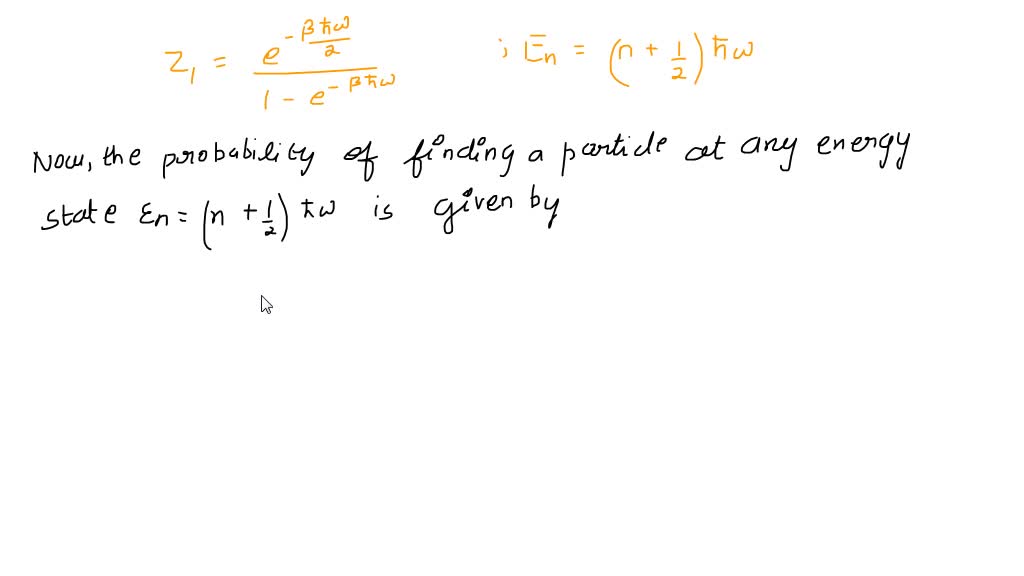 Z₁ = e^(-βħω/2) / (1 - e^(-βħω)) ; En = (n + 1/2) ħω
Now, the probability of finding a particle at any energy
state εn = (n + 1/2) ħω is given by